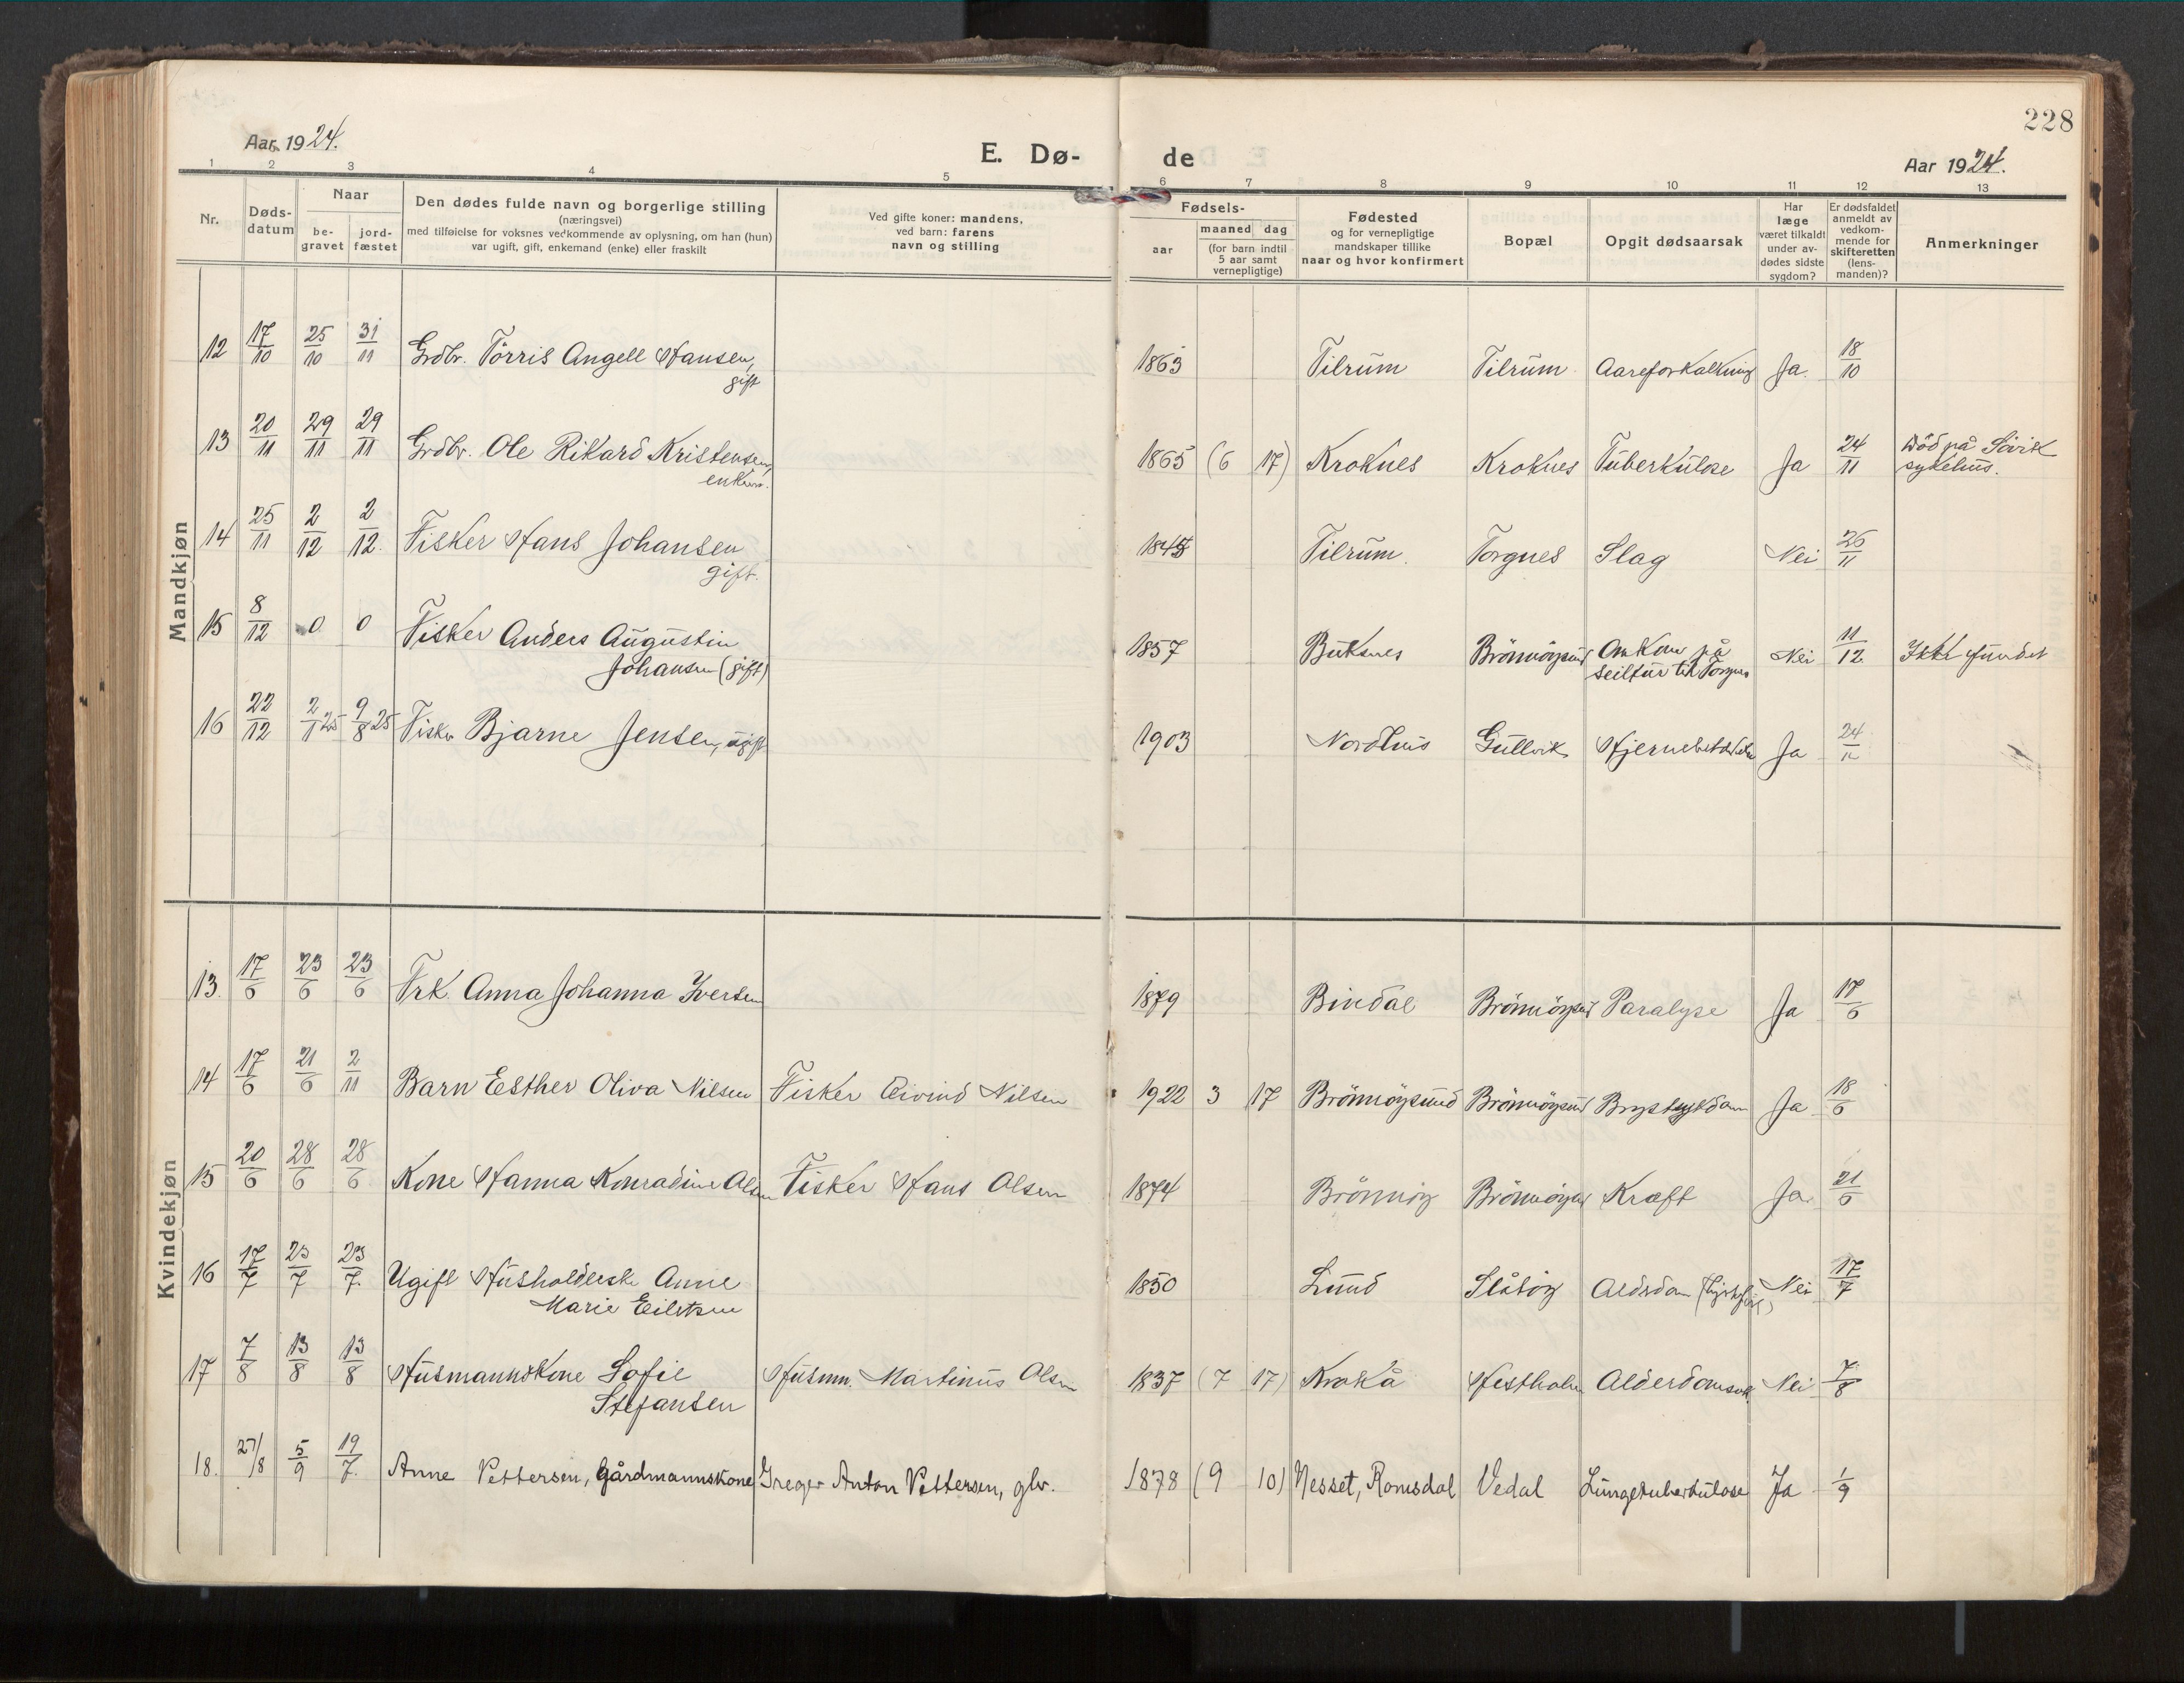 228
Aar 1924.
E. Dø-
de
Aar 1924.
1 2 3 4 5 6 7 8 9 10 11 12 13
Nr.
Døds-
datum
Naar
be-
gravet
jord-
fæstet
Den dødes fulde navn og borgerlige stilling
(næringsvei)
med tilføielse for voksnes vedkommende av oplysning, om han (hun)
var ugift, gift, enkemand (enke) eller fraskilt
Ved gifte koner: mandens,
ved barn: farens
navn og stilling
Fødsels-
aar
maaned dag
(for barn indtil
5 aar samt
vernepligtige)
Fødested
og for vernepligtige
mandskaper tillike
naar og hvor konfirmert
Bopæl
Opgit dødsaarsak
Har
læge
været tilkaldt
under av-
dødes sidste
sygdom?
Er dødsfaldet
anmeldt av
vedkom-
mende for
skifteretten
(lens-
manden)?
Anmerkninger
Mandkjøn
12 17/10 25/10 31/11 Grdbr. Törris Angell Hansen, 1863 Tilrum Tilrum Aareforkalkning Ja. 18/10
gift
13 20/11 29/11 29/11 Grdbr. Ole Rikard Kristensen, 1865 (6 17) Kroknes Kroknes Tuberkulose Ja 24/11 Död på Sövik
enkem. sykehus.
14 25/11 2/12 2/12. Fisker Hans Johansen 1845 Tilrum. Torgnes Slag Nei 26/11
gift.
15 8/12 0 0 Fisker Anders Augustin 1857 Buksnes Brönnöysund Omkom på Nei 11/12 Ikke fundet
Johansen (gift) seiltur til Torgnes
16 22/12 2/1 25 9/8 25 Fisker Bjarne Jensen, ugift 1903 Nordhus Gullvik Ja 24/12
Kvindekjøn
13. 17/6 23/6 23/6 Frk. Anna Johanna Iversen 1879 Bindal Brönnöysund Paralyse Ja 17/6
14 17/6 21/6 2/11 Barn Esther Oliva Nilsen Fisker Eivind Nilsen 1922 3 17 Brönnöysund Brönnöysund Brystsykdom Ja 18/6
15 20/6 28/6 28/6 Kone Hanna Konradine Olsen Fisker Hans Olsen 1874 Brönnöy Brönnöysund Kræft Ja. 21/6
16 17/7 23/7 23/7. Ugift Husholderske Anne 1850 Lund Slåtöy Nei 17/7
Marie Eilertsen
17 7/8 13/8 13/8 Husmannskone Sofie Husmn. Martinus Olsen 1837 (7 17) Krokå Hestholm Alderdomssv. Nei 7/8
Stefansen
18. 27/8 5/9 19/7. Anne Pettersen, gårdmannskone Greger Anton Pettersen, gbr. 1878 (9 10) Nesset, Romsdal Vedal Lungetuberkulose Ja 1/9